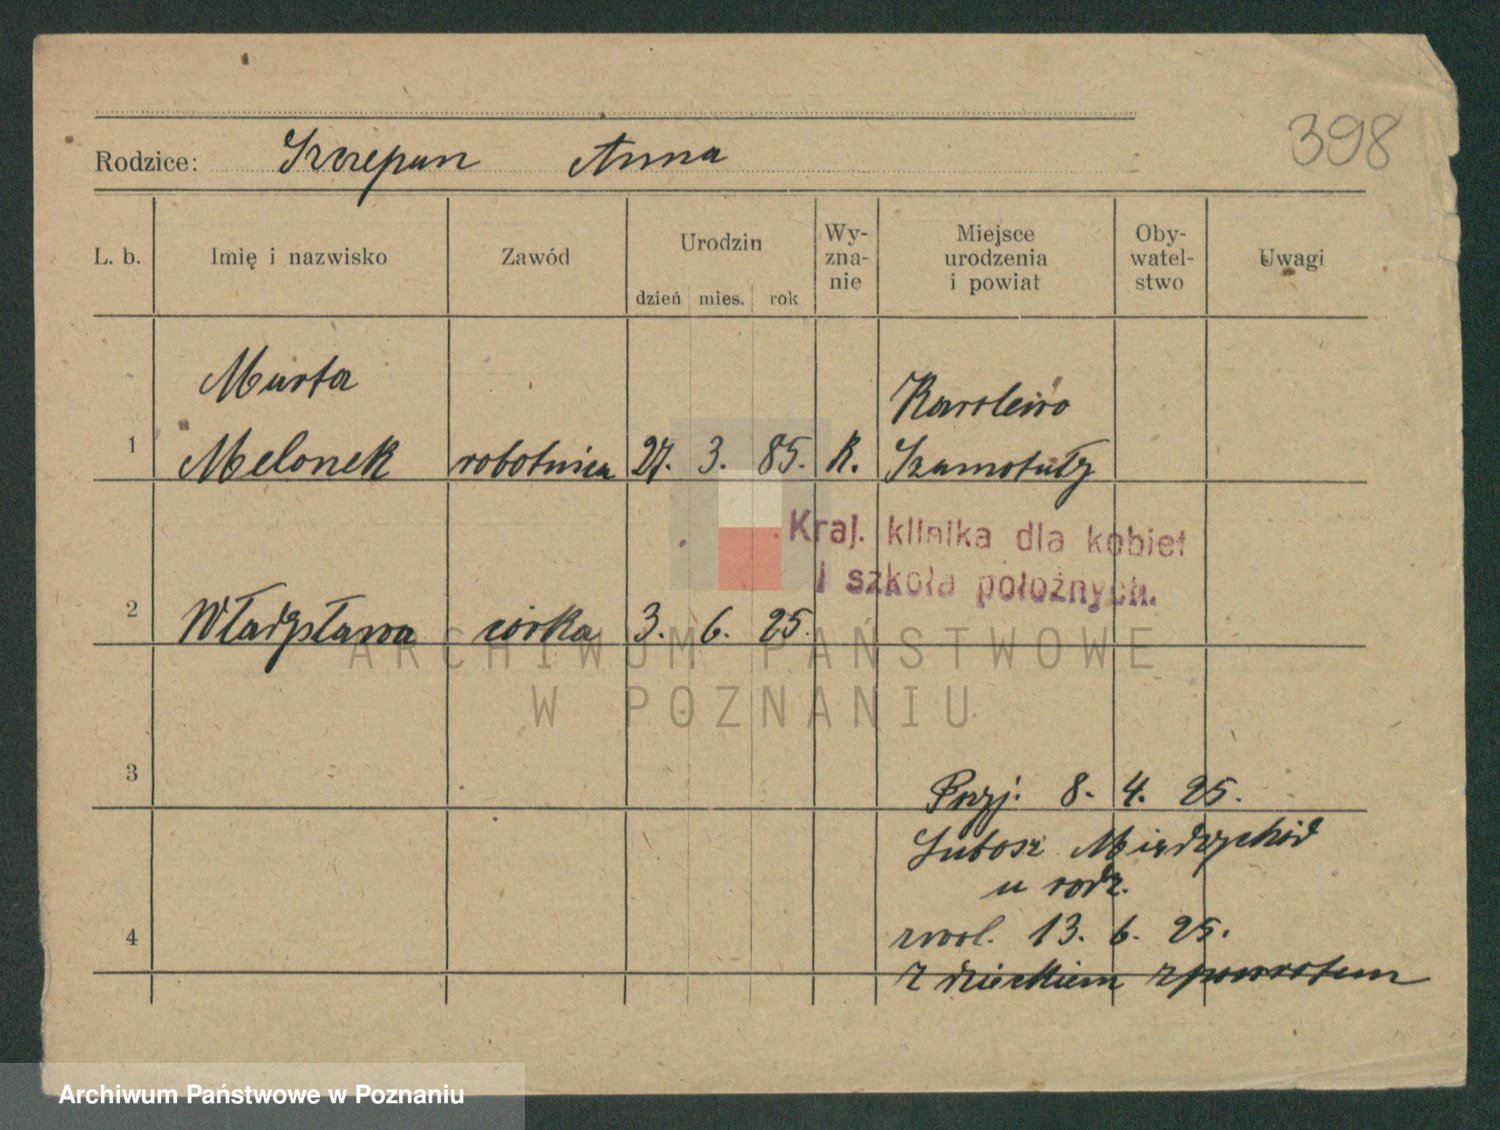 398
Rodzice: Szczepan Anna
L. b. Imię i nazwisko Zawód Urodzin dzień mies. rok Wy-zna-nie Miejsce urodzenia i powiat Oby-watel-stwo Uwagi
Marta Karolewo
1 Melonek robotnica 27. 3. 85. K. Szamotuły
Kraj. klinika dla kobiet
i szkoła położnych.
2 Władysława córka 3. 6. 25.
ARCHIWUM PAŃSTWOWE
W POZNANIU
3 Przyj. 8. 4. 25.
Lubosz Międzychód
u rodz.
4 zwol. 13. 6. 25.
z dzieckiem zpowrotem
Archiwum Państwowe w Poznaniu